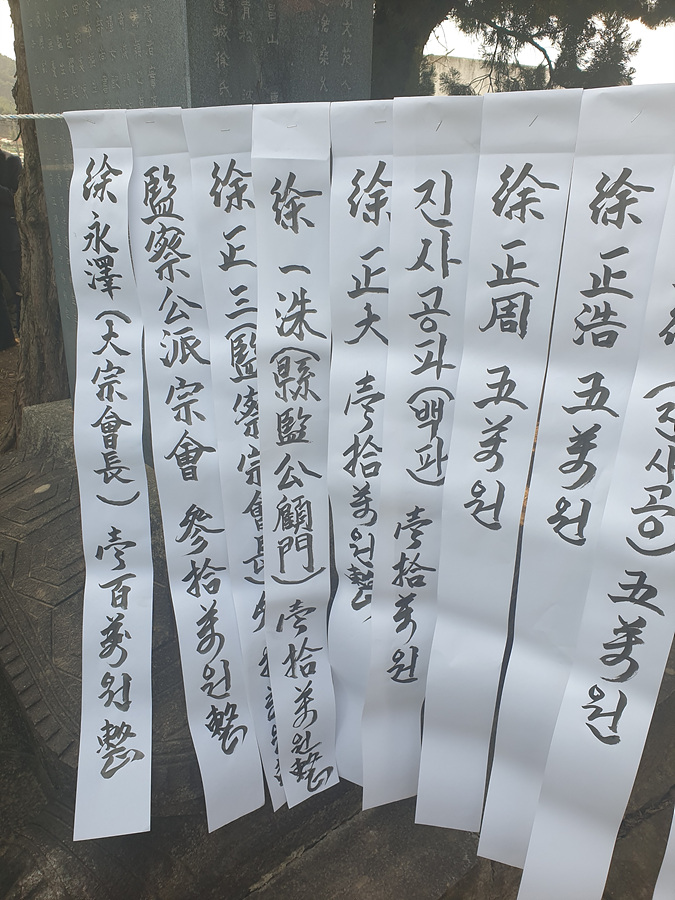 徐永澤(大宗會長) 壹百萬원整
監察公派宗會 參拾萬원整
徐正三(監察宗會長)
徐一洙(縣監公顧門) 壹拾萬원整
徐正大 壹拾萬원整
진사공파(백파) 壹拾萬원
徐正周 五萬원
徐正浩 五萬원
(진사공) 五萬원